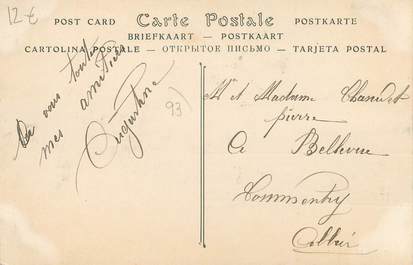 12 €
POST CARD Carte Postale POSTKARTE
BRIEFKAART — POSTKAART
CARTOLINA POSTALE — ОТКРЫТОЕ ПИСЬМО — TARJETA POSTAL
à vous toutes
mes amitiés
Augustine
93)
Mr et Madame Chaudet
pierre
a Bellevue
Commentry
Allier